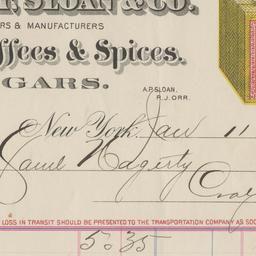 T, SLOAN & CO.
RS & MANUFACTURERS
ffees & Spices.
GARS.
A.P. SLOAN,
R.J. ORR.
New York, Jan 11
Saml Hagerty
LOSS IN TRANSIT SHOULD BE PRESENTED TO THE TRANSPORTATION COMPANY AS SOO
5.35